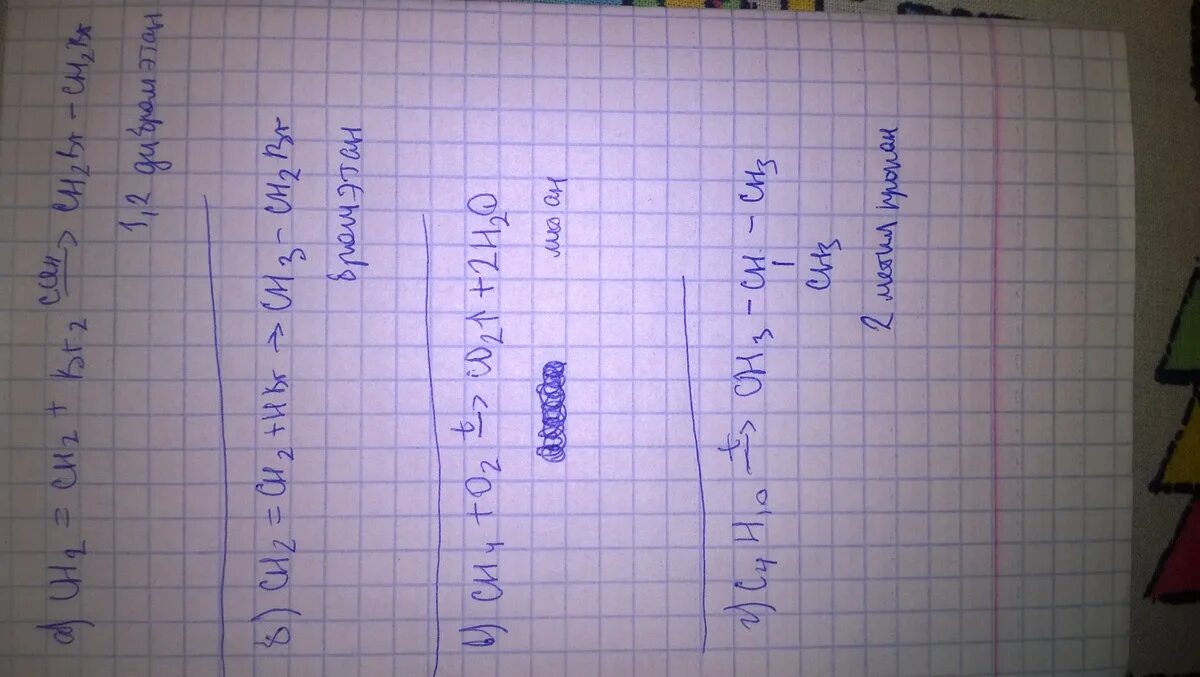 а) CH2 = CH2 + Br2 → CH2Br - CH2Br
1,2 дибромэтан
б) CH2 = CH2 + HBr → CH3 - CH2Br
бромэтан
в) CH4 + O2 t→ CO2↑ + 2H2O
г) C4H10 t→ CH3 - CH - CH3
CH3
2 метил пропан